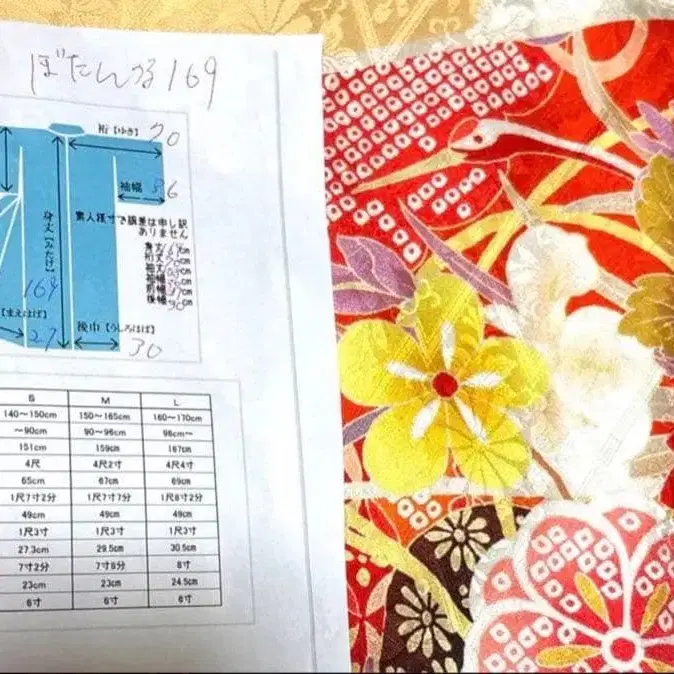 ぼたんつる169
裄【ゆき】 70
袖幅 36
身丈【みたけ】
169
素人採寸で誤差は申し訳
ありません
身丈 169cm
裄丈 70cm
袖丈 cm
袖幅 36cm
前幅 27cm
後幅 30cm
【まえはば】 27
後巾【うしろはば】 30
S M L
140～150cm 150～165cm 160～170cm
～90cm 90～96cm 96cm～
151cm 159cm 167cm
4尺 4尺2寸 4尺4寸
65cm 67cm 69cm
1尺7寸2分 1尺7寸7分 1尺8寸2分
49cm 49cm 49cm
1尺3寸 1尺3寸 1尺3寸
27.3cm 29.5cm 30.5cm
7寸2分 7寸8分 8寸
23cm 23cm 24.5cm
6寸 6寸 6寸